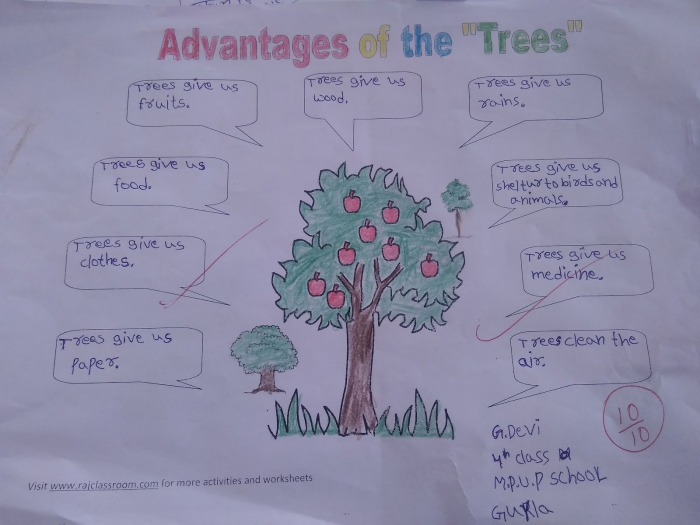 Advantages of the "Trees"
Trees give us
fruits.
Trees give us
wood.
Trees give us
rains.
Trees give us
food.
Trees give us
sheltur to birds and
animals.
Trees give us
clothes.
Trees give us
medicine.
Trees give us
Paper.
Trees clean the
air.
10
10
G.Devi
4th class
M.P.U.P School
Visit www.rajclassroom.com for more activities and worksheets